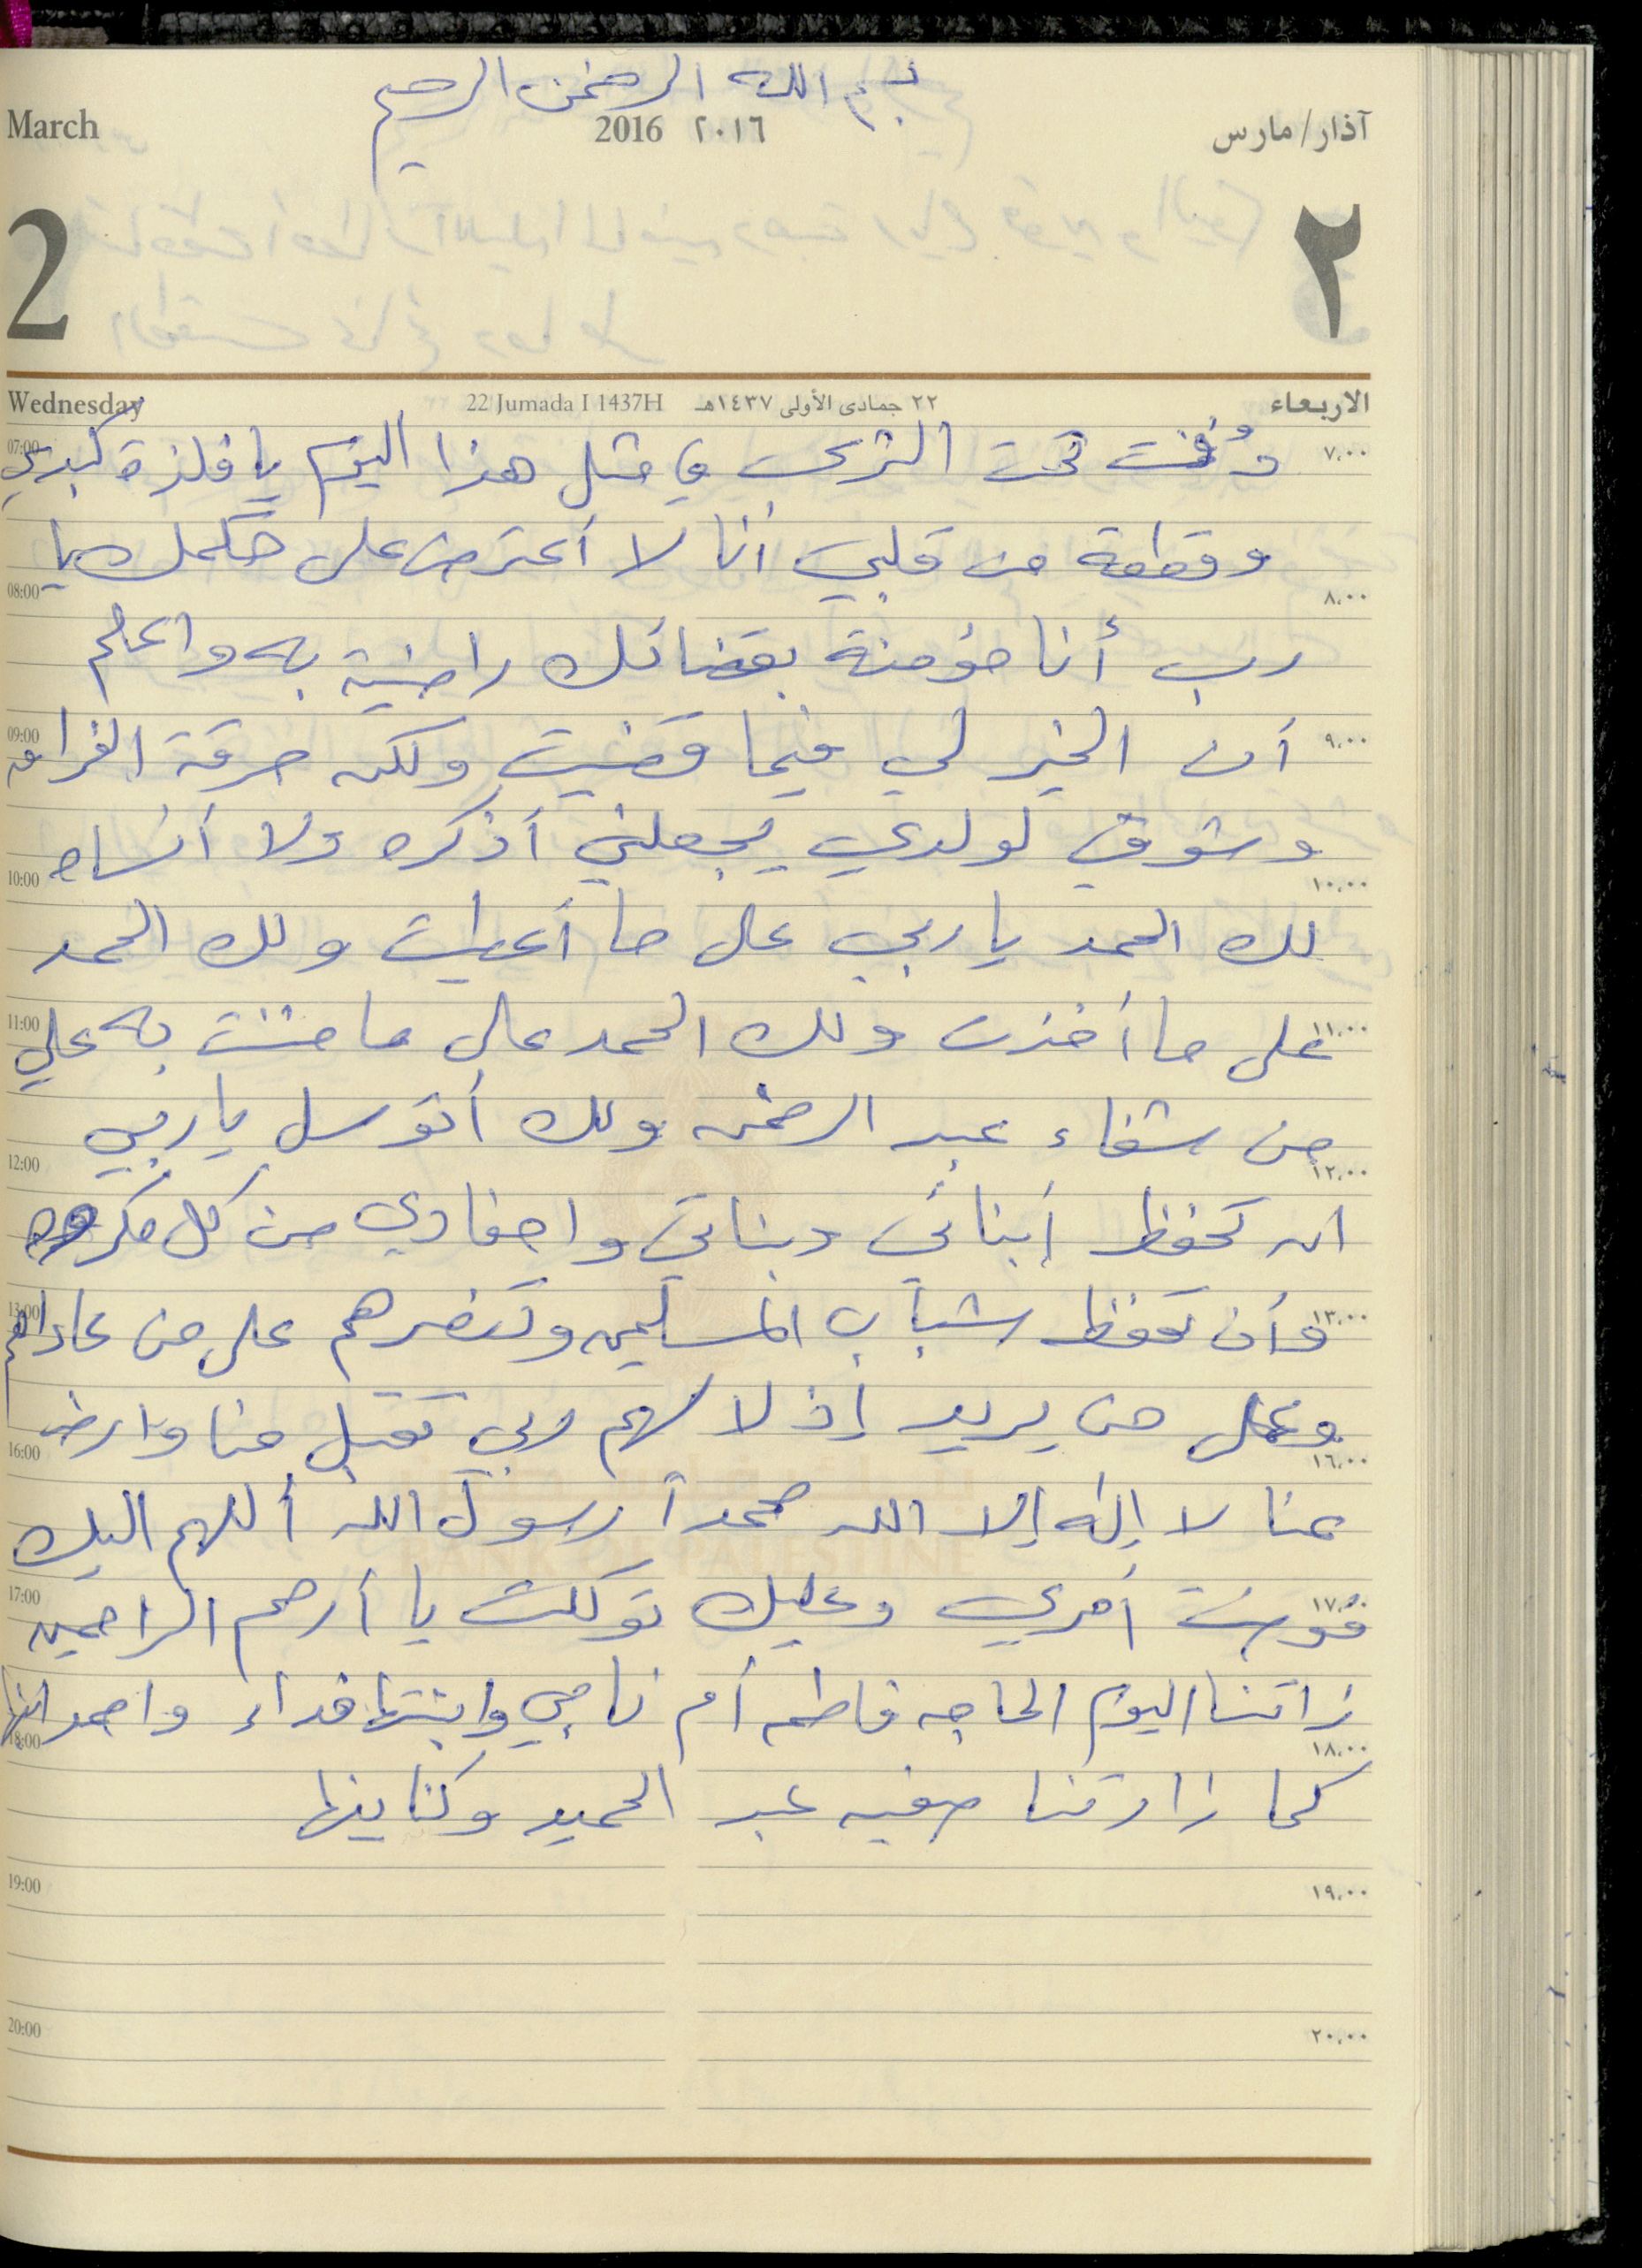 بسم الله الرحمن الرحيم
March 2016 ٢٠١٦ آذار/مارس
2 ٢
Wednesday 22 Jumada I 1437H ٢٢ جمادى الأولى ١٤٣٧هـ الاربعاء
07:00 دُفنت تحت الثرى في مثل هذا اليوم يا فلذة كبدي ٧,٠٠
وقطعة من قلبي أنا لا أعترض على حكمك يا
08:00 ٨,٠٠
رب أنا مؤمنة بقضائك راضية به واعلم
09:00 أن الخير لي فيما قضيت ولكن حرقة الفراق ٩,٠٠
وشوقي لولدي يجعلني أذكره ولا أنساه
10:00 ١٠,٠٠
لك الحمد يا ربي على ما أعطيت ولك الحمد
11:00 على ما أخذت ولك الحمد على ما مننت به علي ١١,٠٠
من شفاء عبد الرحمن ولك أتوسل يا ربي
12:00 ١٢,٠٠
ان تحفظ أبنائي وبناتي واحفادي من كل مكروه
13:00 وأن تحفظ شباب المسلمين وتنصرهم على من عاداهم ١٣,٠٠
وعلى من يريد إذلالهم ربي تقبل منا وارض
16:00 ١٦,٠٠
عنا لا إله إلا الله محمداً رسول الله أللهم اليك
BANK OF PALESTINE
17:00 فوضت أمري وعليك توكلت يا أرحم الراحمين ١٧,٠٠
زاتنا اليوم الحاجه فاطمه أم ناجي وابنتها فداء واحمد ابنها
18:00 ١٨,٠٠
كما زارتنا صفيه عبد الحميد وكنا ينها
19:00 ١٩,٠٠
20:00 ٢٠,٠٠